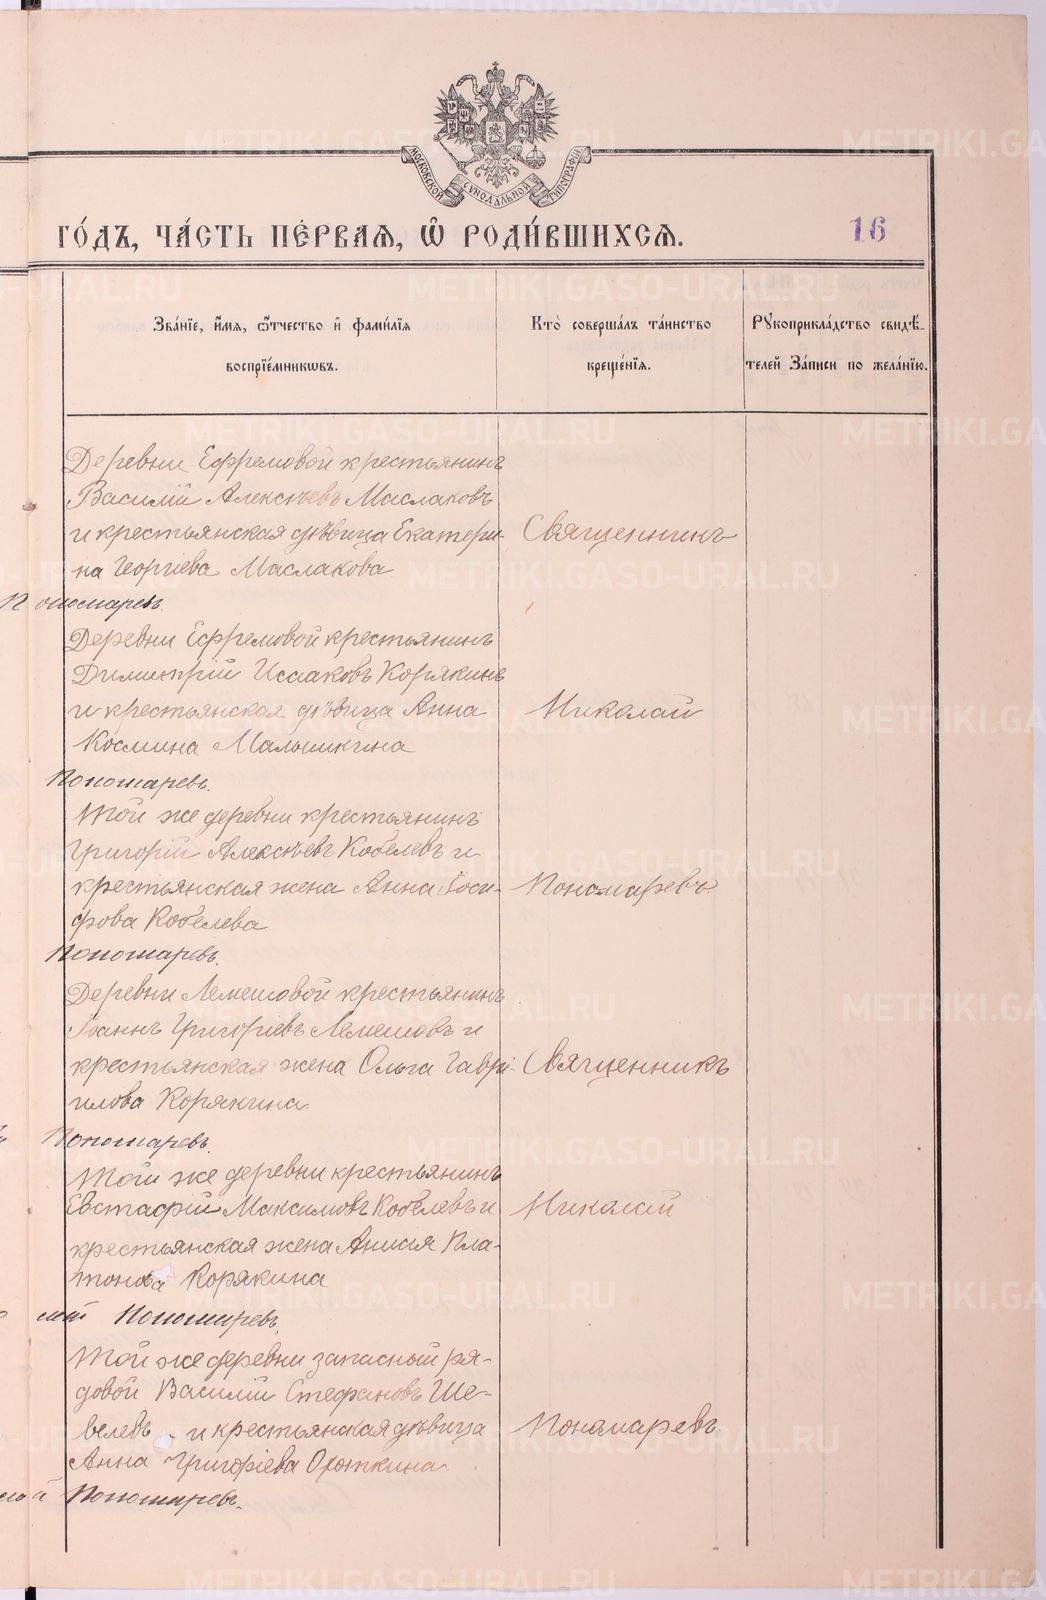 МОСКОВСКОЙ СѴНОДАЛЬНОЙ ТИПОГРАФІИ
ГО́ДЪ, ЧА́СТЬ ПЕ́РВАѦ, Ѿ РОДИ́ВШИХСѦ.
16
Зва́нїе, и҆́мѧ, ѻ҆́тчество и҆ фами́лїѧ
воспрїе́мникѡвъ.
Кто̀ соверша́лъ та́инство
креще́нїѧ.
Рꙋкоприкла́дство свидѣ́-
телей За́писи по жела́нїю.
Деревни Ефремовой крестьянинъ
Василій Алексѣевъ Маслаковъ
и крестьянская дѣвица Екатери-
на Георгіева Маслакова
Священникъ
Пономаревъ.
Деревни Ефремовой крестьянинъ
Димитрій Исааковъ Корякинъ
и крестьянская дѣвица Анна
Космина Малышкина
Николай
Пономаревъ.
Той же деревни крестьянинъ
Григорій Алексѣевъ Кобелевъ и
крестьянская жена Анна Іоси-
фова Кобелева
Пономаревъ.
Пономаревъ.
Деревни Лемешовой крестьянинъ
Іоаннъ Григоріевъ Лемешовъ и
крестьянская жена Ольга Гаврі-
илова Корякина.
Священникъ
Пономаревъ.
Той же деревни крестьянинъ
Евстафій Максимовъ Кобелевъ и
крестьянская жена Анисія Пла-
тонова Корякина
Николай
лай Пономаревъ.
Той же деревни запасный ря-
довой Василій Стефановъ Ше-
велевъ и крестьянская дѣвица
Анна Григоріева Охоткина.
Пономаревъ.
лай Пономаревъ.
METRIKI.GASO-URAL.RU